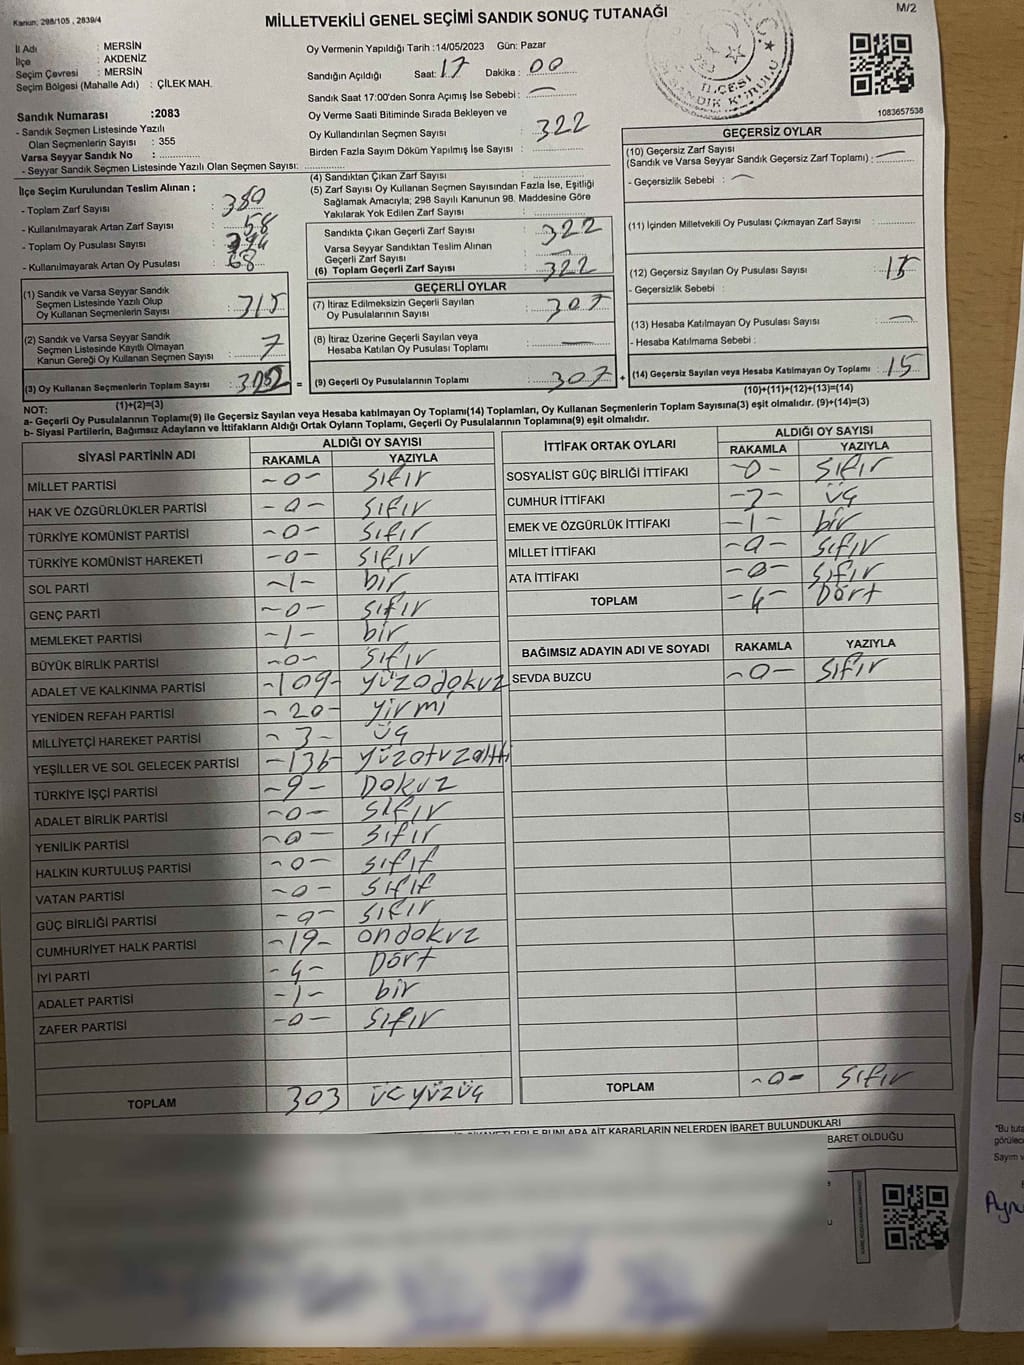 Kanun: 298/105 , 2839/4
MİLLETVEKİLİ GENEL SEÇİMİ SANDIK SONUÇ TUTANAĞI
M/2
İl Adı : MERSİN
İlçe : AKDENİZ
Seçim Çevresi : MERSİN
Seçim Bölgesi (Mahalle Adı) : ÇİLEK MAH.
Sandık Numarası :2083
- Sandık Seçmen Listesinde Yazılı
Olan Seçmenlerin Sayısı : 355
Varsa Seyyar Sandık No :
- Seyyar Sandık Seçmen Listesinde Yazılı Olan Seçmen Sayısı:
Oy Vermenin Yapıldığı Tarih :14/05/2023 Gün: Pazar
Sandığın Açıldığı Saat: 17 Dakika : 00
Sandık Saat 17:00'den Sonra Açımış İse Sebebi : —
Oy Verme Saati Bitiminde Sırada Bekleyen ve
Oy Kullandırılan Seçmen Sayısı : 322
Birden Fazla Sayım Döküm Yapılmış İse Sayısı :
İLÇESİ
SANDIK KURULU
1083657538
İlçe Seçim Kurulundan Teslim Alınan ;
- Toplam Zarf Sayısı : 380
- Kullanılmayarak Artan Zarf Sayısı : 58
- Toplam Oy Pusulası Sayısı :
- Kullanılmayarak Artan Oy Pusulası : 68
(1) Sandık ve Varsa Seyyar Sandık
Seçmen Listesinde Yazılı Olup
Oy Kullanan Seçmenlerin Sayısı : 315
(2) Sandık ve Varsa Seyyar Sandık
Seçmen Listesinde Kayıtlı Olmayan
Kanun Gereği Oy Kullanan Seçmen Sayısı : 7
(3) Oy Kullanan Seçmenlerin Toplam Sayısı :
=
(1)+(2)=(3)
(4) Sandıktan Çıkan Zarf Sayısı :
(5) Zarf Sayısı Oy Kullanan Seçmen Sayısından Fazla İse, Eşitliği
Sağlamak Amacıyla; 298 Sayılı Kanunun 98. Maddesine Göre
Yakılarak Yok Edilen Zarf Sayısı :
Sandıkta Çıkan Geçerli Zarf Sayısı : 322
Varsa Seyyar Sandıktan Teslim Alınan
Geçerli Zarf Sayısı : —
(6) Toplam Geçerli Zarf Sayısı : 322
GEÇERLİ OYLAR
(7) İtiraz Edilmeksizin Geçerli Sayılan
Oy Pusulalarının Sayısı : 307
(8) İtiraz Üzerine Geçerli Sayılan veya
Hesaba Katılan Oy Pusulası Toplamı : —
(9) Geçerli Oy Pusulalarının Toplamı : 307
+
GEÇERSİZ OYLAR
(10) Geçersiz Zarf Sayısı
(Sandık ve Varsa Seyyar Sandık Geçersiz Zarf Toplamı) : —
- Geçersizlik Sebebi : —
(11) İçinden Milletvekili Oy Pusulası Çıkmayan Zarf Sayısı :
(12) Geçersiz Sayılan Oy Pusulası Sayısı : 15
- Geçersizlik Sebebi :
(13) Hesaba Katılmayan Oy Pusulası Sayısı : —
- Hesaba Katılmama Sebebi :
(14) Geçersiz Sayılan veya Hesaba Katılmayan Oy Toplamı : 15
(10)+(11)+(12)+(13)=(14)
NOT:
a- Geçerli Oy Pusulalarının Toplamı(9) ile Geçersiz Sayılan veya Hesaba katılmayan Oy Toplamı(14) Toplamları, Oy Kullanan Seçmenlerin Toplam Sayısına(3) eşit olmalıdır. (9)+(14)=(3)
b- Siyasi Partilerin, Bağımsız Adayların ve İttifakların Aldığı Ortak Oyların Toplamı, Geçerli Oy Pusulalarının Toplamına(9) eşit olmalıdır.
SİYASİ PARTİNİN ADI ALDIĞI OY SAYISI
RAKAMLA YAZIYLA
MİLLET PARTİSİ -0- sıfır
HAK VE ÖZGÜRLÜKLER PARTİSİ -0- sıfır
TÜRKİYE KOMÜNİST PARTİSİ -0- sıfır
TÜRKİYE KOMÜNİST HAREKETİ -0- sıfır
SOL PARTİ -1- bir
GENÇ PARTİ -0- sıfır
MEMLEKET PARTİSİ -1- bir
BÜYÜK BİRLİK PARTİSİ -0- sıfır
ADALET VE KALKINMA PARTİSİ -109- yüzodokuz
YENİDEN REFAH PARTİSİ -20- yirmi
MİLLİYETÇİ HAREKET PARTİSİ -3- üç
YEŞİLLER VE SOL GELECEK PARTİSİ -136- yüzotuzaltı
TÜRKİYE İŞÇİ PARTİSİ -9- Dokuz
ADALET BİRLİK PARTİSİ -0- sıfır
YENİLİK PARTİSİ -0- sıfır
HALKIN KURTULUŞ PARTİSİ -0- sıfıf
VATAN PARTİSİ -0- sıfıf
GÜÇ BİRLİĞİ PARTİSİ -0- sıfır
CUMHURİYET HALK PARTİSİ -19- ondokuz
İYİ PARTİ -4- Dört
ADALET PARTİSİ -1- bir
ZAFER PARTİSİ -0- sıfır
TOPLAM 303 üçyüzüç
İTTİFAK ORTAK OYLARI ALDIĞI OY SAYISI
RAKAMLA YAZIYLA
SOSYALİST GÜÇ BİRLİĞİ İTTİFAKI -0- sıfır
CUMHUR İTTİFAKI -3- üç
EMEK VE ÖZGÜRLÜK İTTİFAKI -1- bir
MİLLET İTTİFAKI -0- sıfır
ATA İTTİFAKI -0- sıfır
TOPLAM -4- Dört
BAĞIMSIZ ADAYIN ADI VE SOYADI RAKAMLA YAZIYLA
SEVDA BUZCU -0- sıfır
TOPLAM -0- sıfır
BUNLARA AİT KARARLARIN NELERDEN İBARET BULUNDUKLARI
BARET OLDUĞU
*Bu tuta
görülec
Sayım v